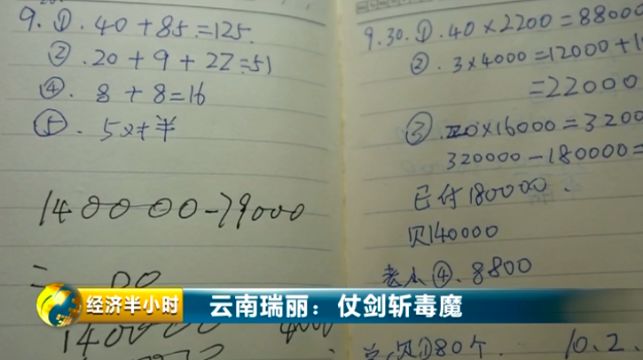 9. ①. 40 + 85 = 125.
②. 20 + 9 + 22 = 51
④. 8 + 8 = 16
⑤. 5对半
140000-79000
=
140000
9.30. ①. 40 × 2200 = 88000
②. 3×4000 = 12000 + 1
= 22000
③. 20×16000 = 3200
320000 - 180000 =
已付180000.
欠140000
老小④. 8800
80个
10.2.
经济半小时
云南瑞丽：仗剑斩毒魔